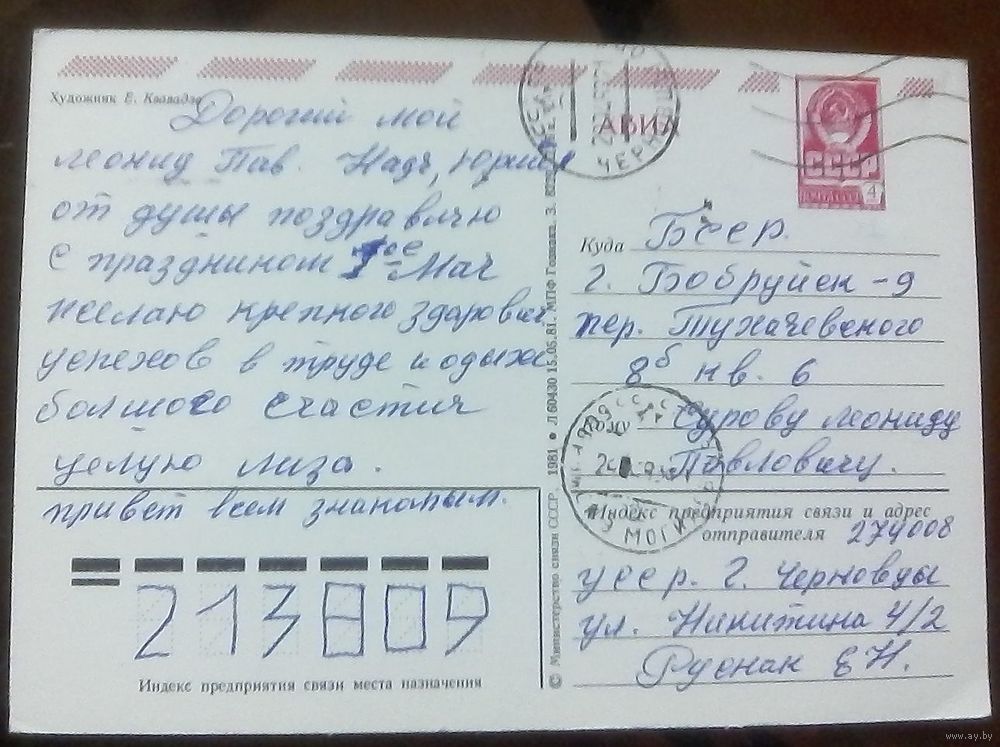 Художник Е. Квавадзе
Дорогий мой
Леонид Пав. Надя,
от душы поздравляю
с праздником 1ое Мая
желаю крепкого здаровья
успехов в труде и одыхе
болшого счастия
целую лиза.
привет всем знакомым.
213809
Индекс предприятия связи места назначения
© Министерство связи СССР. 1981 • Л 60430 15.05.81. МПФ Гознака. З.
АВИА
СССР
4
Куда Бсср.
г. Бобруйск-9
пер. Тухачевского
8б кв. 6
Кому Сурову Леониду
Павловичу.
Индекс предприятия связи и адрес
отправителя 274008
усср. г. Черновцы
ул. Никитина 4/2
Руснак Е Н.
www.ay.by